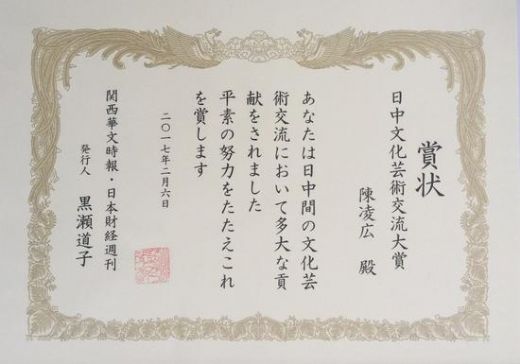 賞状
日中文化芸術交流大賞
陳凌広 殿
あなたは日中間の文化芸
術交流において多大な貢
献をされました
平素の努力をたたえこれ
を賞します
二〇一七年二月六日
関西華文時報・日本財経週刊
発行人 黒瀬道子